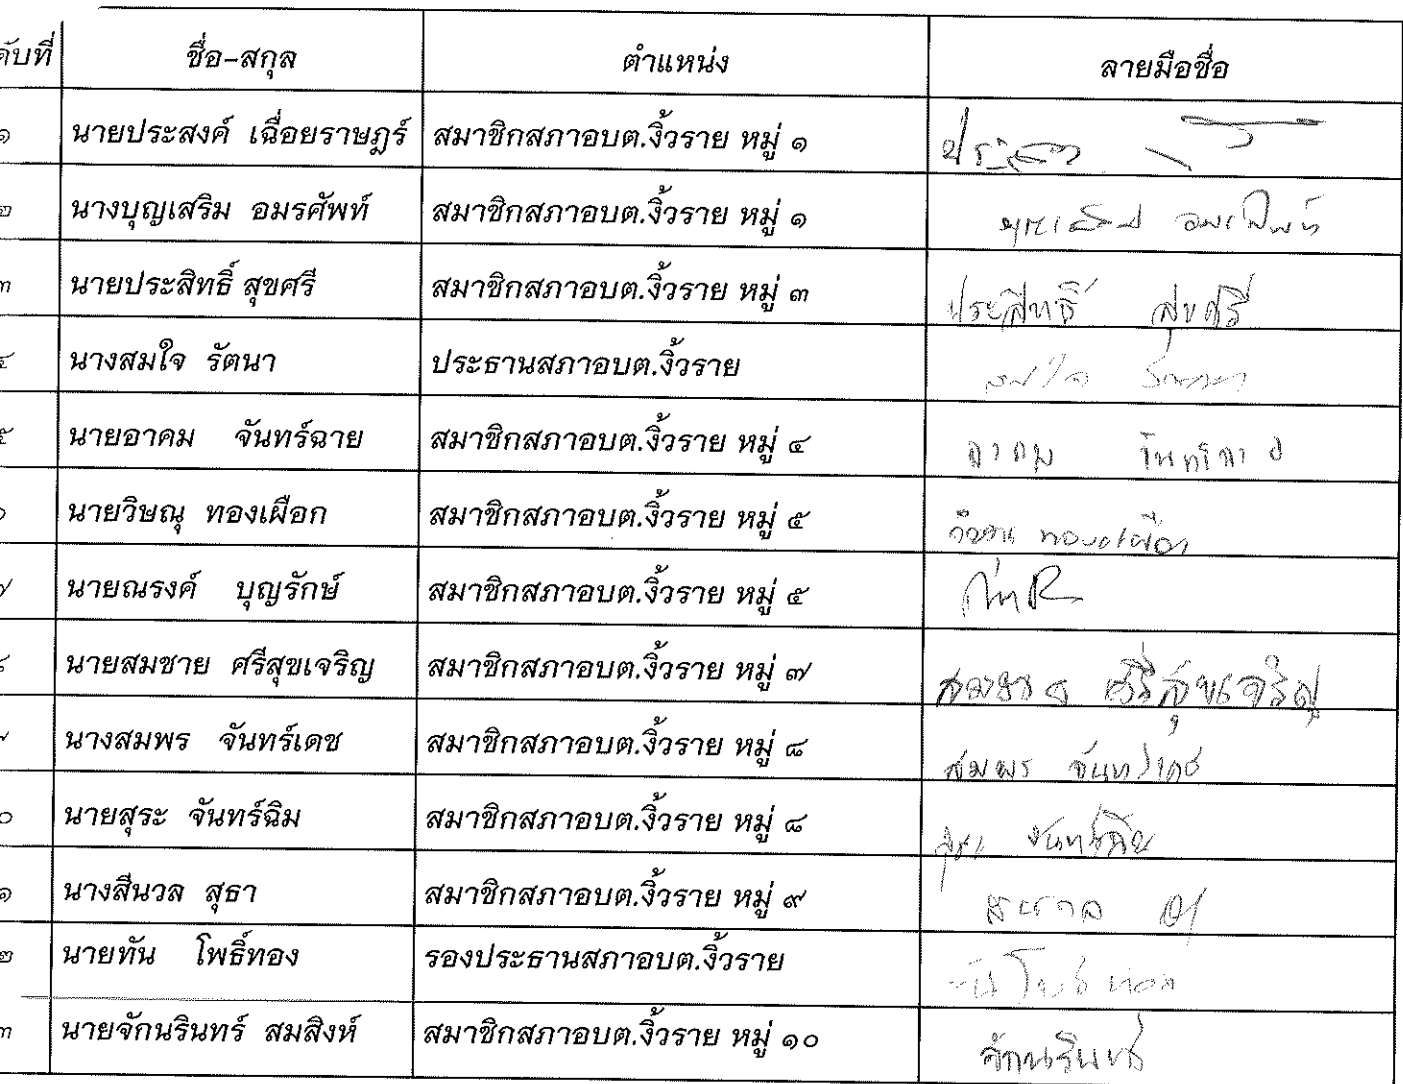 ดับที่ ชื่อ-สกุล ตำแหน่ง ลายมือชื่อ
๑ นายประสงค์ เฉื่อยราษฎร์ สมาชิกสภาอบต.งิ้วราย หมู่ ๑
๒ นางบุญเสริม อมรศัพท์ สมาชิกสภาอบต.งิ้วราย หมู่ ๑
๓ นายประสิทธิ์ สุขศรี สมาชิกสภาอบต.งิ้วราย หมู่ ๓ ประสิทธิ์ สุขศรี
๔ นางสมใจ รัตนา ประธานสภาอบต.งิ้วราย
๕ นายอาคม จันทร์ฉาย สมาชิกสภาอบต.งิ้วราย หมู่ ๔ อาคม จันทร์ฉาย
นายวิษณุ ทองเผือก สมาชิกสภาอบต.งิ้วราย หมู่ ๕ ทองเผือก
๗ นายณรงค์ บุญรักษ์ สมาชิกสภาอบต.งิ้วราย หมู่ ๕
นายสมชาย ศรีสุขเจริญ สมาชิกสภาอบต.งิ้วราย หมู่ ๗ สมชาย ศรีสุขเจริญ
นางสมพร จันทร์เดช สมาชิกสภาอบต.งิ้วราย หมู่ ๘ สมพร จันทร์เดช
๐ นายสุระ จันทร์ฉิม สมาชิกสภาอบต.งิ้วราย หมู่ ๘ สุระ จันทร์ฉิม
๑ นางสีนวล สุธา สมาชิกสภาอบต.งิ้วราย หมู่ ๙
๒ นายทัน โพธิ์ทอง รองประธานสภาอบต.งิ้วราย
๓ นายจักนรินทร์ สมสิงห์ สมาชิกสภาอบต.งิ้วราย หมู่ ๑๐ จักนรินทร์